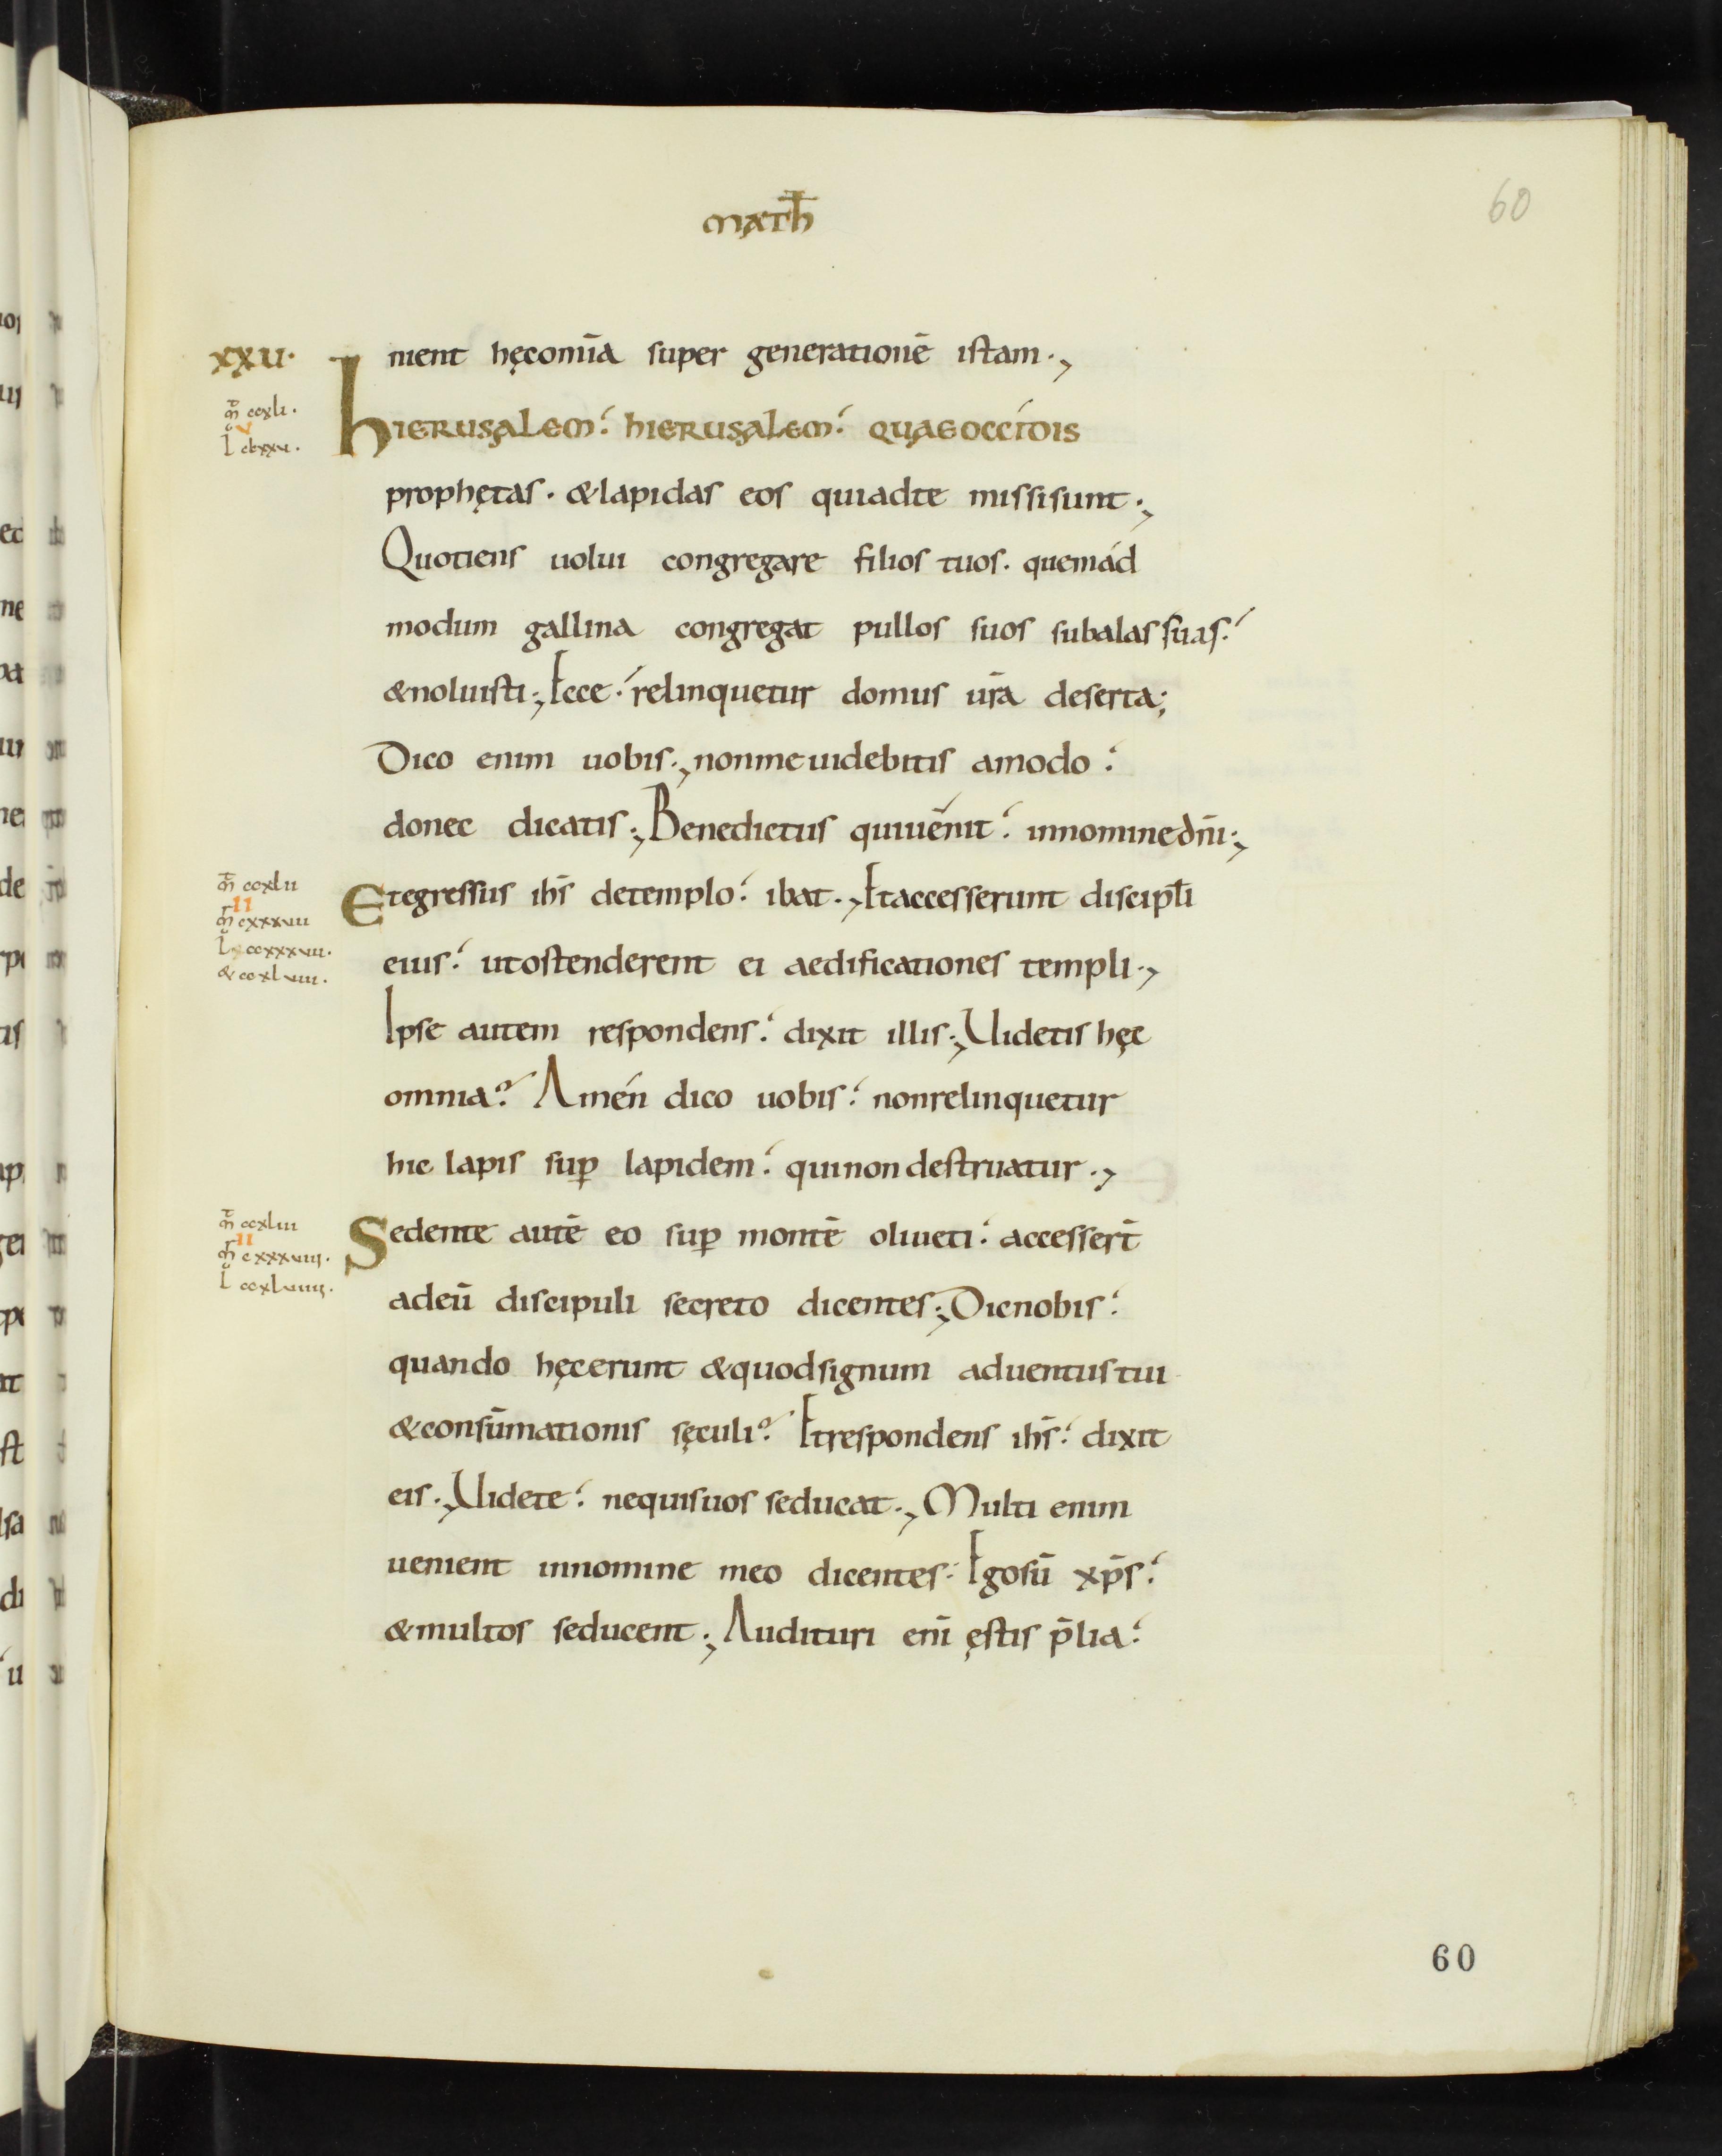 math̄
60
xxu·
nient hęcom̄ia super generationē istam·,
m̄ ccxli·
v
l clxxv·
hierusalem· hierusalem· quaeoccídis
prophętas· &lapidas eos quiadte missisunt·,
Quotiens uolui congregare filios tuos· quemád
modum gallina congregat pullos suos subalas suas·
&noluisti·, Ecce· relinquetur domus ur̄a deserta;
Dico enim uobis·, nonme uidebitis amodo·
donec dicatis·, Benedictus quiuénit· innomine dn̄i·,
m̄ ccxlii
II
m̄ cxxxvii
l ccxxxvii·
& ccxlviii·
Etegressus ih̄s detemplo· ibat·, Etaccesserunt discipl̄i
eius· utostenderent ei aedificationes templi·,
Ipse autem respondens· dixit illis·, Uidetis hęc
omnia? Amén dico uobis· nonrelinquetur
hic lapis sup̱ lapidem· quinon destruatur·,
m̄ ccxliii
II
m̄ cxxxviii·
l ccxlviiii·
Sedente autē eo sup̱ montē oliueti· accesser̄t
adeū discipuli secreto dicentes·, Dicnobis·
quando hęcerunt &quodsignum aduentus tui
&consūmationis sęculi? Etrespondens ih̄s· dixit
eis·, Uidete· nequisuos seducat·, Multi enim
uenient innomine meo dicentes· Egosū xp̄s·
&multos seducent·, Audituri eni̅ ęstis p̄lia·
60